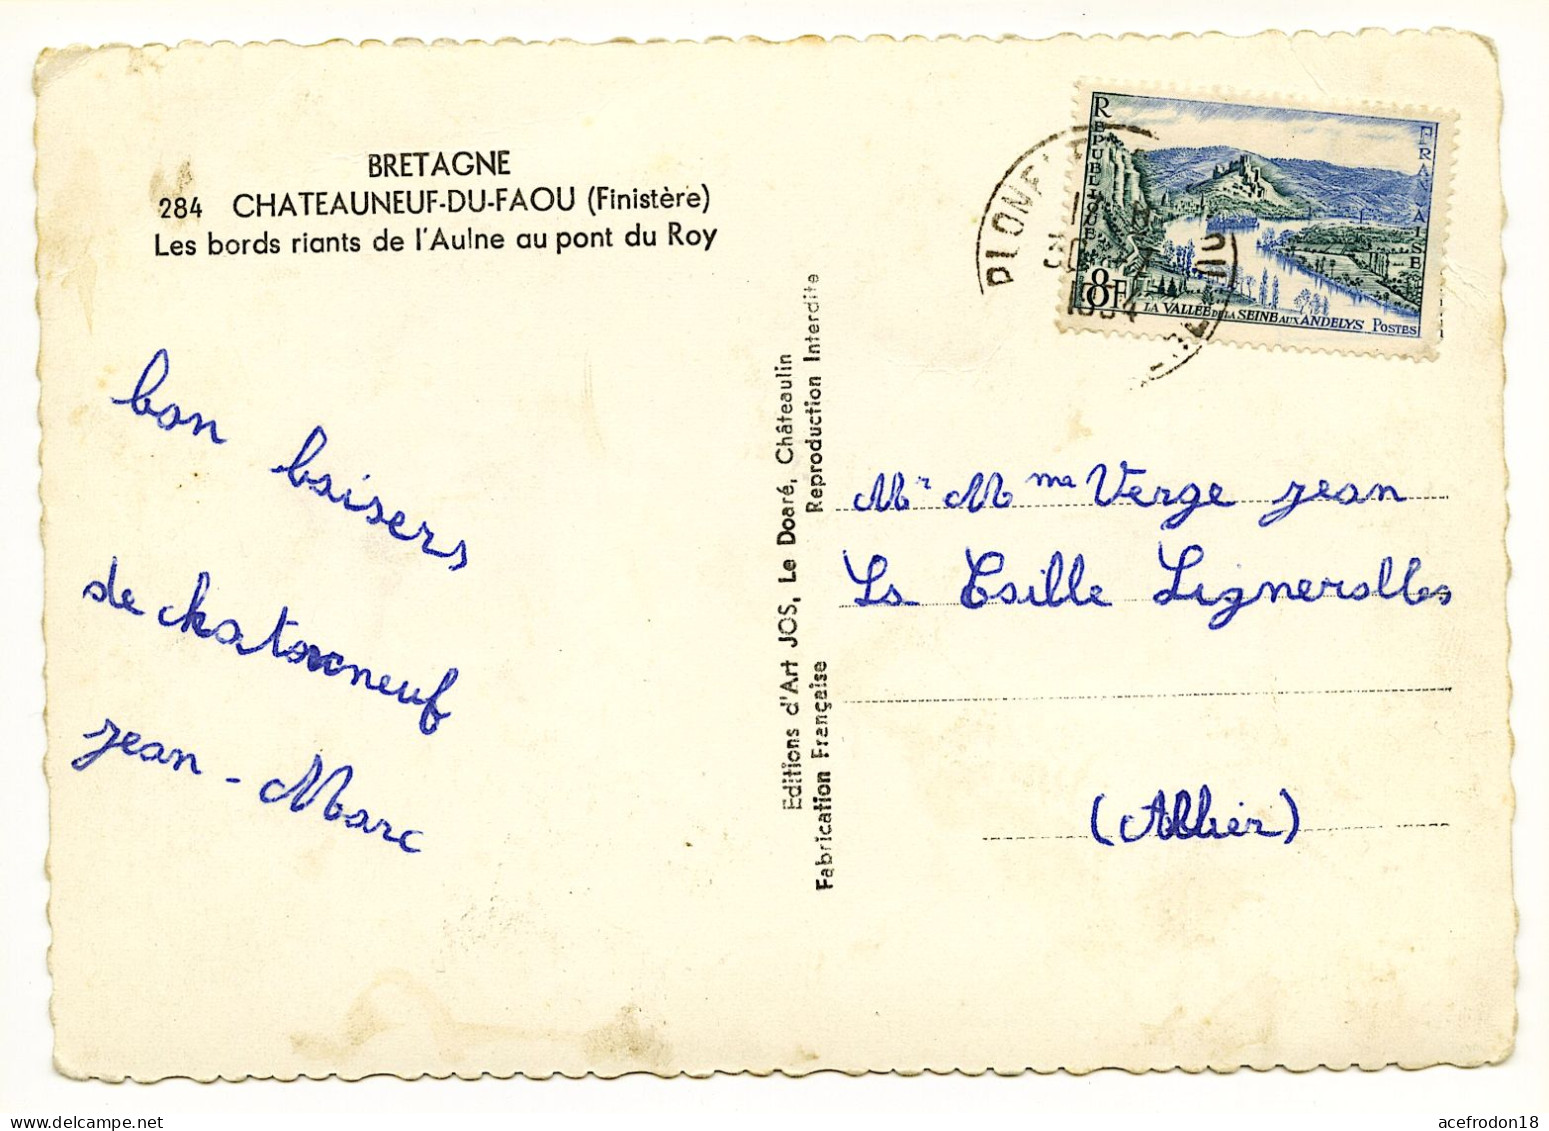 BRETAGNE
284 CHATEAUNEUF-DU-FAOU (Finistère)
Les bords riants de l'Aulne au pont du Roy
bon baisers
de chatocneuf
jean - Marc
Editions d'Art JOS, Le Doaré, Châteaulin
Fabrication Française Reproduction Interdite
REPUBLIQUE FRANÇAISE
8F
LA VALLÉE DE LA SEINE AUX ANDELYS POSTES
1954
Mr Mme Verge jean
La Caille Lignerolles
(Allier)
acefrodon18